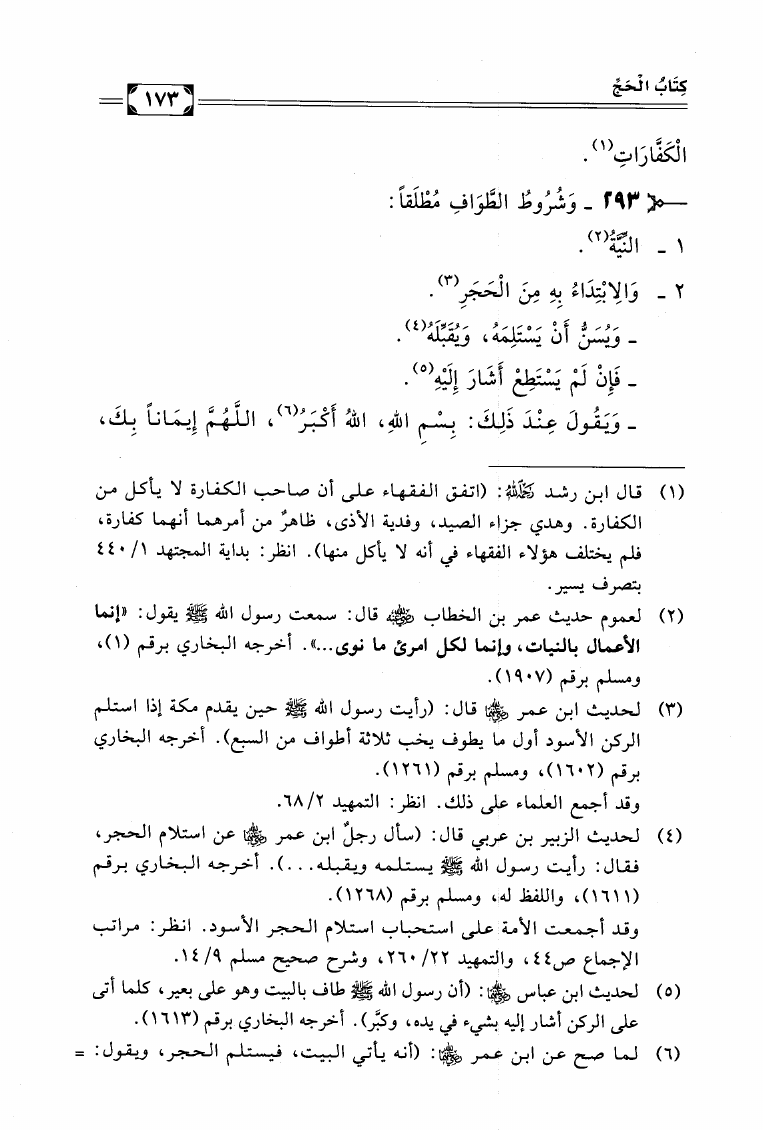 كِتَابُ الْحَجِّ
١٧٣
الْكَفَّارَاتِ(١).
٢٩٣ ـ وَشُرُوطُ الطَّوَافِ مُطْلَقاً:
١ ـ النِّيَّةُ(٢).
٢ ـ وَالِابْتِدَاءُ بِهِ مِنَ الْحَجَرِ(٣).
ـ وَيُسَنُّ أَنْ يَسْتَلِمَهُ، وَيُقَبِّلَهُ(٤).
ـ فَإِنْ لَمْ يَسْتَطِعْ أَشَارَ إِلَيْهِ(٥).
ـ وَيَقُولَ عِنْدَ ذَلِكَ: بِسْمِ اللهِ، اللهُ أَكْبَرُ(٦)، اللَّهُمَّ إِيمَاناً بِكَ،
(١) قال ابن رشد رَحِمَهُ اللهُ: (اتفق الفقهاء على أن صاحب الكفارة لا يأكل من
الكفارة. وهدي جزاء الصيد، وفدية الأذى، ظاهرٌ من أمرهما أنهما كفارة،
فلم يختلف هؤلاء الفقهاء في أنه لا يأكل منها). انظر: بداية المجتهد ٤٤٠/١
بتصرف يسير.
(٢) لعموم حديث عمر بن الخطاب رضي الله عنه قال: سمعت رسول الله ﷺ يقول: «إنما
الأعمال بالنيات، وإنما لكل امرئ ما نوى...». أخرجه البخاري برقم (١)،
ومسلم برقم (١٩٠٧).
(٣) لحديث ابن عمر رضي الله عنهما قال: (رأيت رسول الله ﷺ حين يقدم مكة إذا استلم
الركن الأسود أول ما يطوف يخب ثلاثة أطواف من السبع). أخرجه البخاري
برقم (١٦٠٢)، ومسلم برقم (١٢٦١).
وقد أجمع العلماء على ذلك. انظر: التمهيد ٦٨/٢.
(٤) لحديث الزبير بن عربي قال: (سأل رجلٌ ابن عمر رضي الله عنهما عن استلام الحجر،
فقال: رأيت رسول الله ﷺ يستلمه ويقبله...). أخرجه البخاري برقم
(١٦١١)، واللفظ له، ومسلم برقم (١٢٦٨).
وقد أجمعت الأمة على استحباب استلام الحجر الأسود. انظر: مراتب
الإجماع ص٤٤، والتمهيد ٢٦٠/٢٢، وشرح صحيح مسلم ١٤/٩.
(٥) لحديث ابن عباس رضي الله عنهما: (أن رسول الله ﷺ طاف بالبيت وهو على بعير، كلما أتى
على الركن أشار إليه بشيء في يده، وكبَّر). أخرجه البخاري برقم (١٦١٣).
(٦) لما صح عن ابن عمر رضي الله عنهما: (أنه يأتي البيت، فيستلم الحجر، ويقول: =